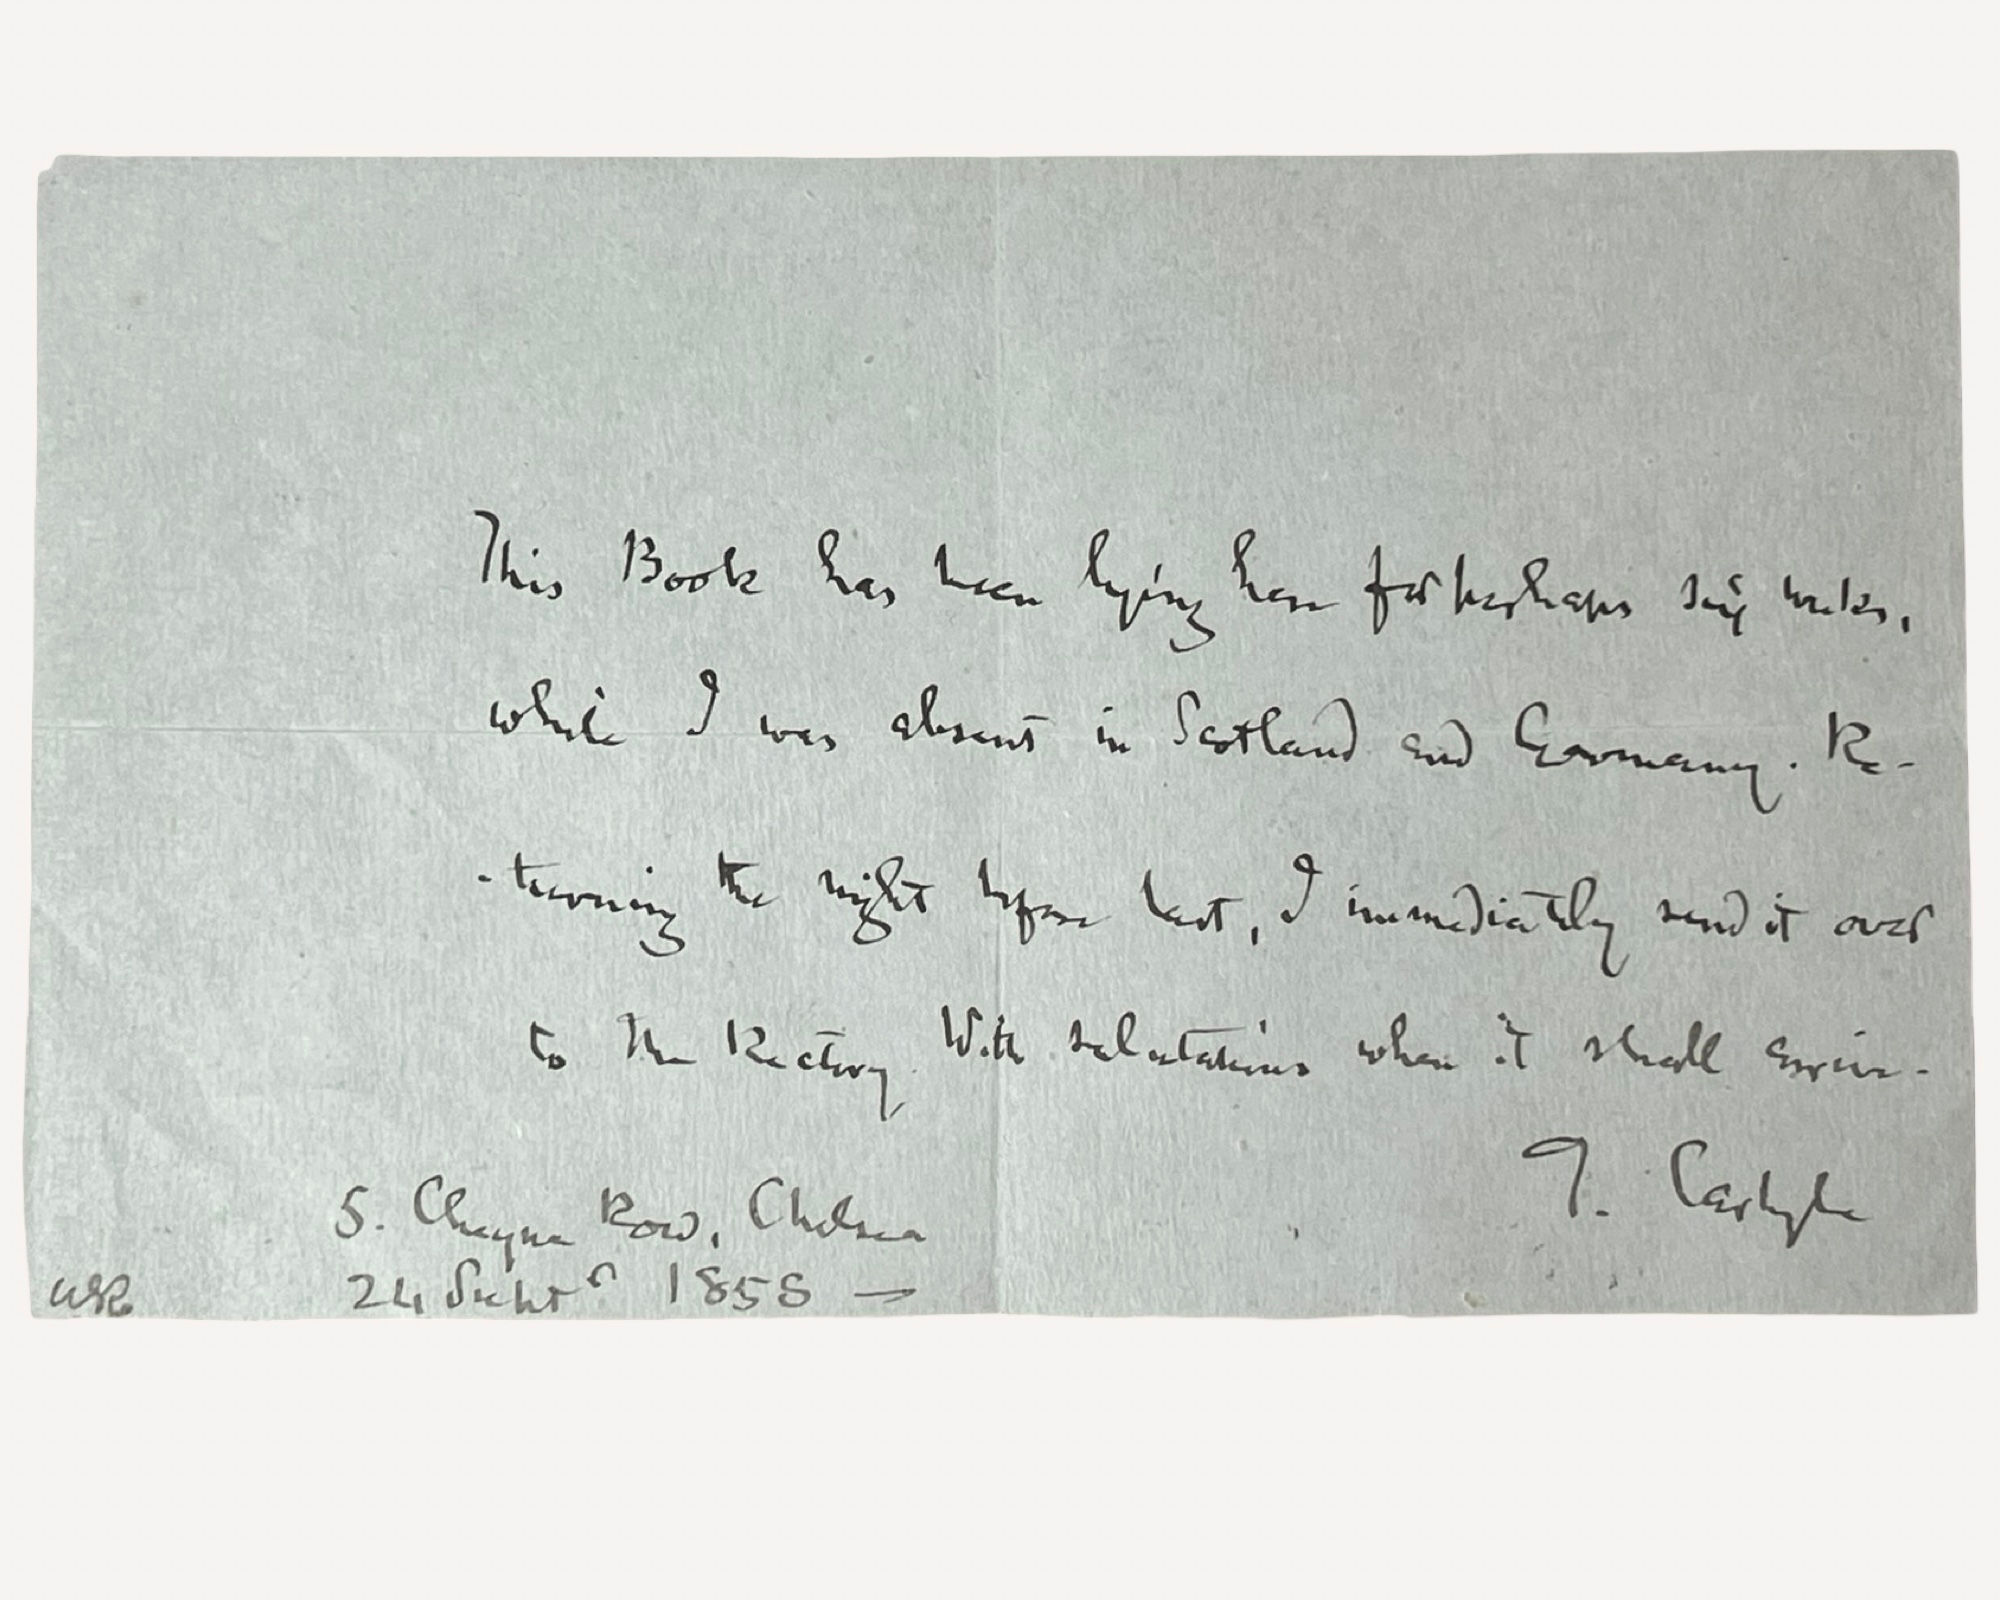 This Book has been lying here for perhaps six weeks,
while I was absent in Scotland and Germany. Re-
-turning the night before last, I immediately send it over
to the Rectory. With salutations when it shall arrive.
T. Carlyle
5. Cheyne Row, Chelsea
24 Septr 1858 —